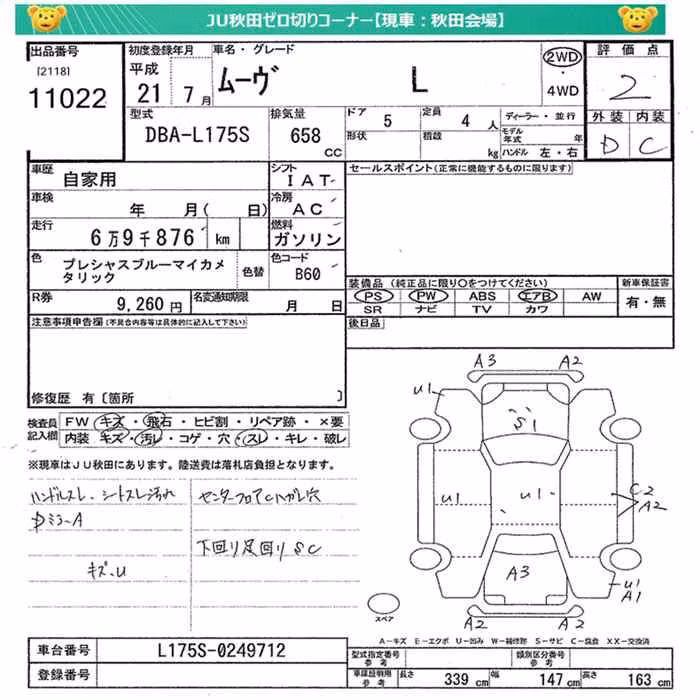 JU秋田ゼロ切りコーナー【現車：秋田会場】
出品番号 初度登録年月 車名・グレード 2WD ・ 4WD 評価点
[2118] 11022 平成 21 7月 ムーヴ L 2
型式 排気量 ドア 5 定員 4 人 ディーラー・並行 外装 内装
DBA-L175S 658 CC 形状 積載 kg モデル年式 年 D C
ハンドル 左・右
車歴 自家用 シフト IAT セールスポイント(正常に機能するものに限ります)
車検 年 月( 日) 冷房 AC
走行 6万9千876 km 燃料 ガソリン
色 プレシャスブルーマイカメタリック 色替 色コード B60
装備品 (純正品に限り○をつけてください) 新車保証書
PS PW ABS エアB AW 有・無
SR ナビ TV カワ
R券 9,260円 名変通知期限 月 日
後日品
注意事項申告欄(不具合内容等は具体的に記入して下さい)
修復歴 有〔箇所 〕
検査員記入欄 FW キズ・飛石・ヒビ割・リペア跡・×要
内装 キズ・汚レ・コゲ・穴・スレ・キレ・破レ
※現車はJU秋田にあります。陸送費は落札店負担となります。
ハンドルスレ、シートスレ汚れ センターフロアCハガレ穴
DミラーA
下回り足回りSC
キズ、U
A3 A2
U1
S1
U1 U1 C2
A2
A3
U1
A1
A2 A2
スペア
A-キズ E-エクボ U-凹み W-補修跡 S-サビ C-腐食 XX-交換済
車台番号 L175S-0249712 型式指定番号 参考 類別区分番号 参考
登録番号 車庫証明用 参考 長さ 339 cm 幅 147 cm 高さ 163 cm